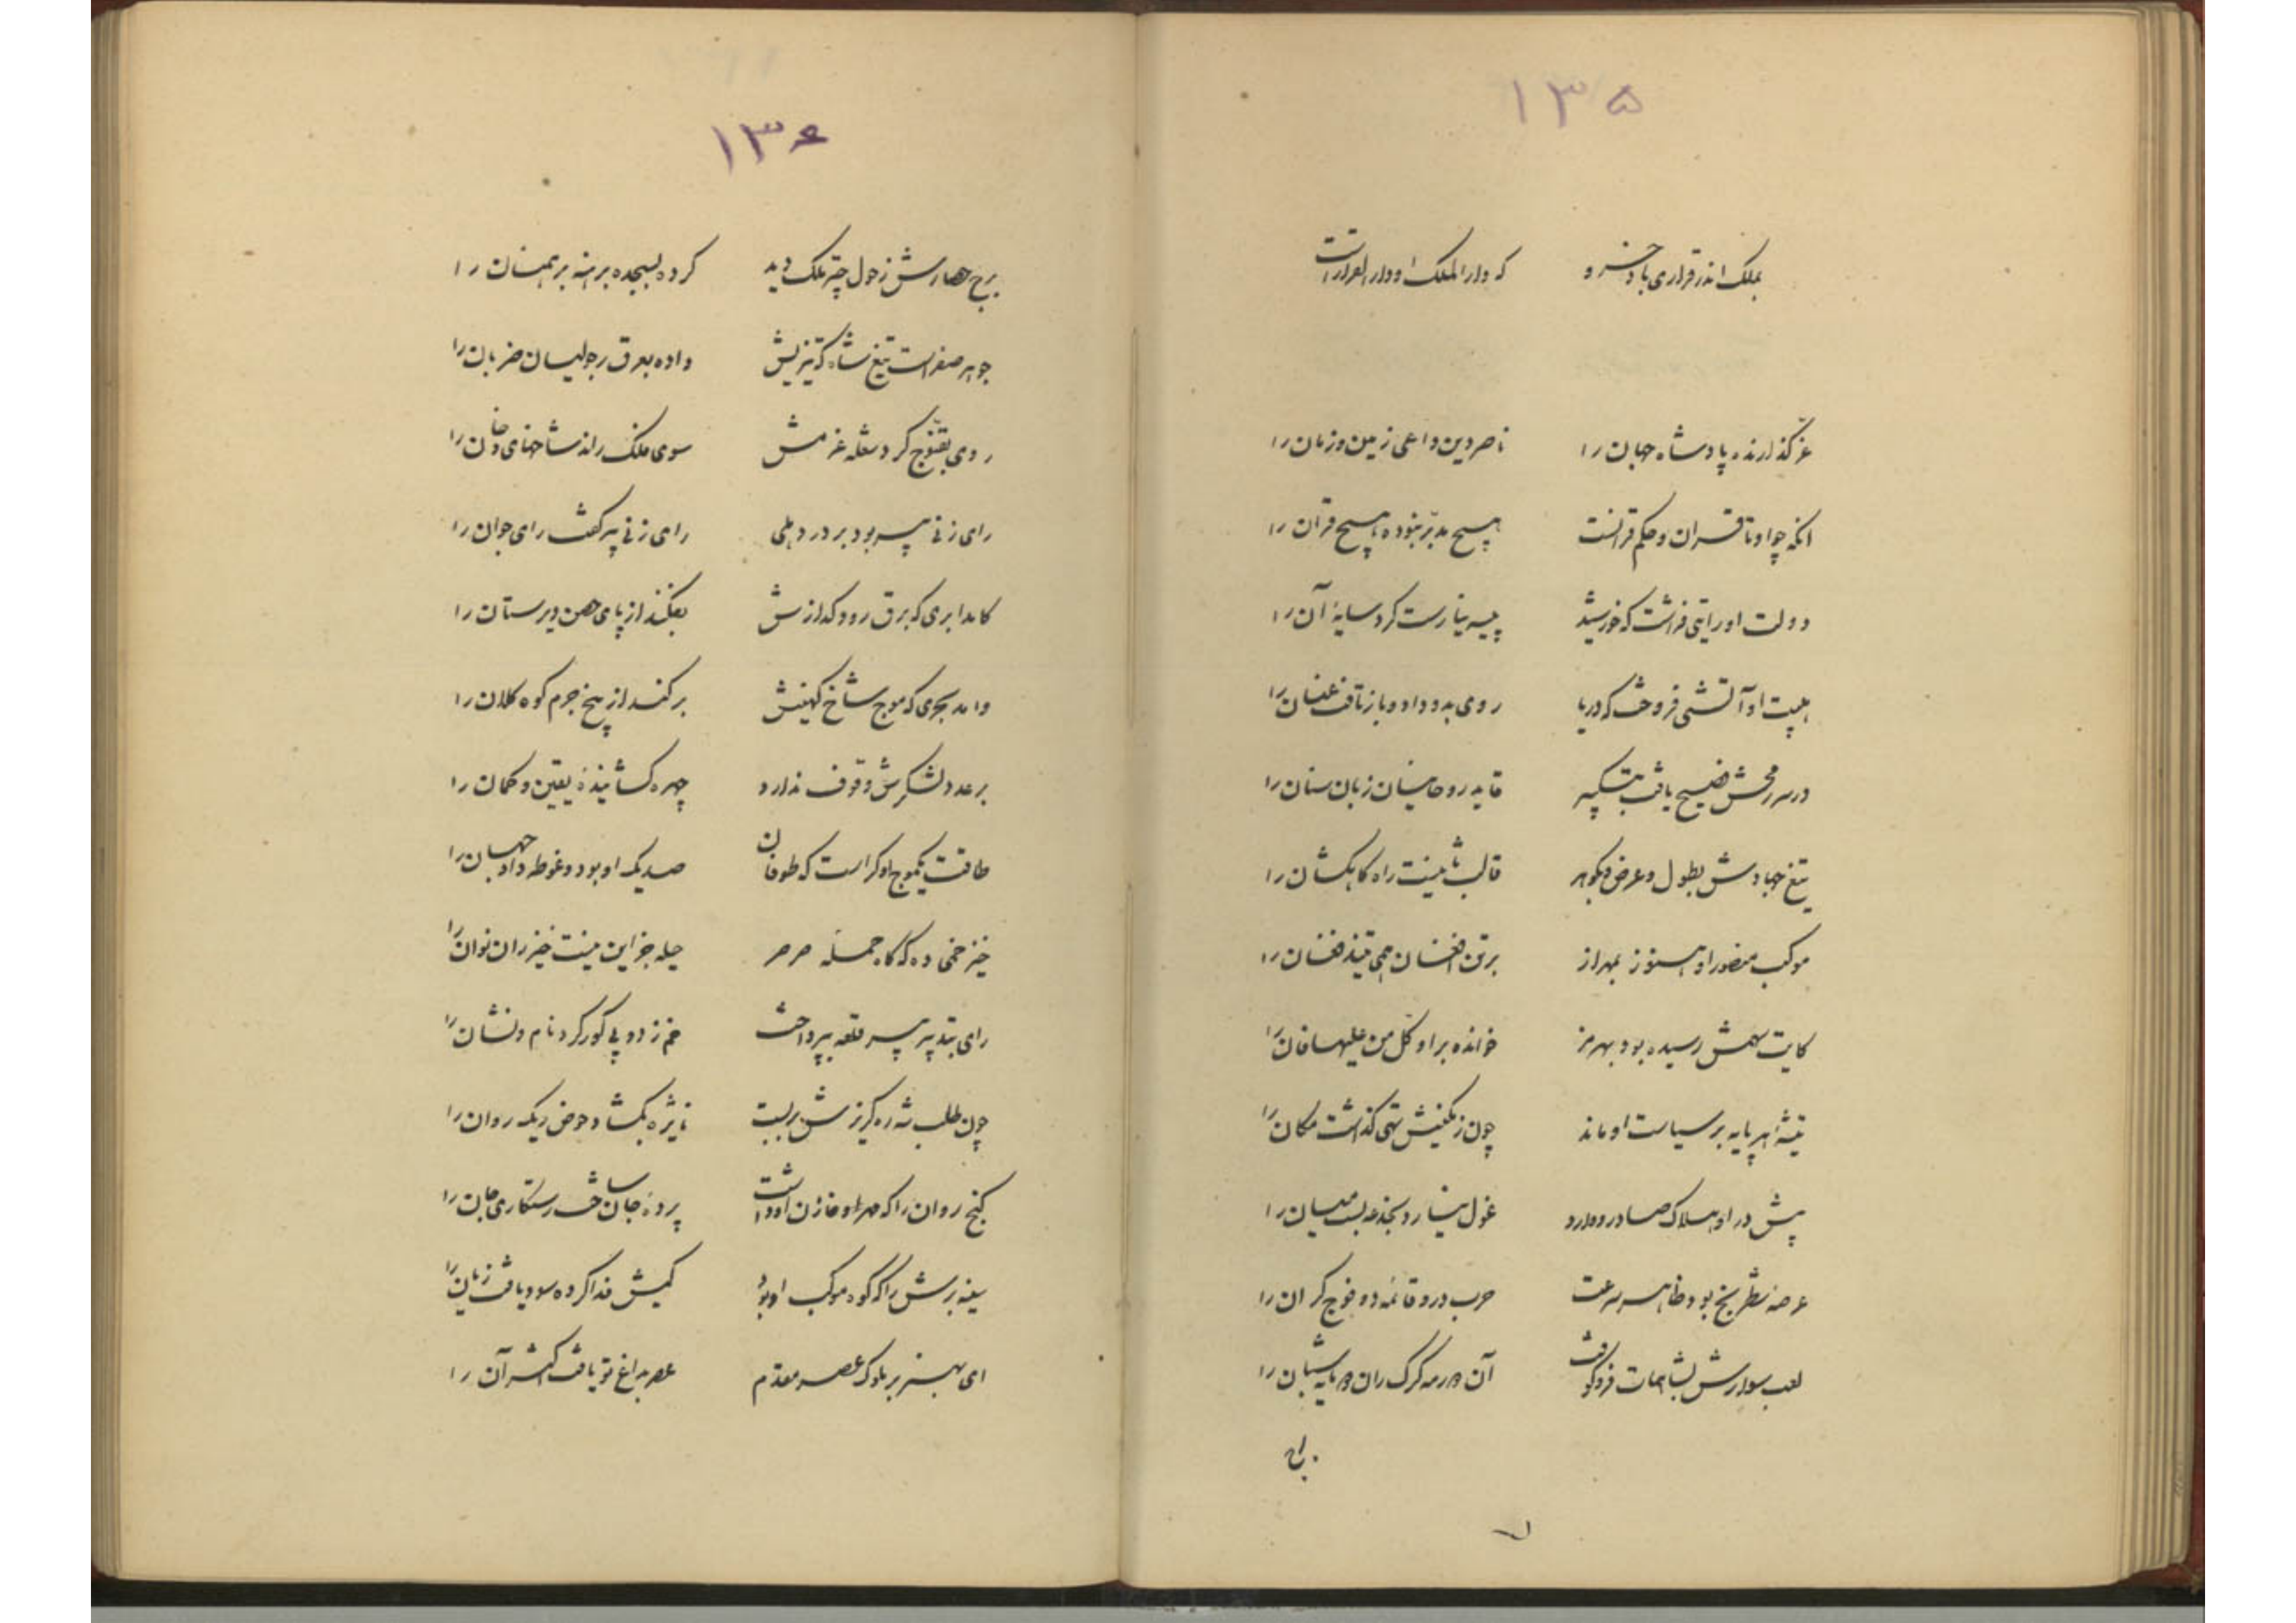 ۱۳۵
بملک اندر قراری باد خسرو که دار الملک او دار القرارست
عز گذارنده پادشاه جهان را ناصر دین داعی زمین و زمان را
آنکه چو او تا قران و حکم قرانست هیچ مدبر نبوده هیچ قران را
دولت او رایتی فراشت که خورشید پی سپر نیارست کرد سایه آن را
هیبت او آتشی فروخت که دریا روی بدو داد و باز تافت عنان را
در سر رمحش فصیح یافت قاید روحانیان زبان سنان را
تیغ جهادش بطول و عرض و بگوهر قالب راه کاهکشان را
موکب منصور او هنوز بهراز برتن افغان همی تنید فغان را
کایت سهمش رسیده بود بهرمز خوانده بر او کل من علیها فان را
تیشه هر پایه بر سیاست او ماند چون ز تهی گذاشت مکان را
پیش در او هلاک صادر و وارد غول بیسار و بست میان را
عرصه شطرنج بود ظاهر سرعت حرب در و قائمه دو فوج گران را
لعب سوارش بشاهمات فرو کوفت آن رمه گرگ ران شبان را
برج
۱۳۶
برج حصارش ز هول چتر ملک دید کرده بسجده برهنه برهمنان را
جوهر صفراست تیغ شاه که تیزیش داده بعرق ضربان را
روی بقنوج کرد شعله عزمش سوی ملک راند شاخهای دخان را
رای زنی پیر بود بر در دهلی رای زنی پیر گفت رای جوان را
کامد ابری که برق رود گدازش بفکند از پای حصن دیرستان را
وامد بحری که موج شاخ کهینش برکند از بیخ جرم کوه کلان را
بر عدد لشکرش وقوف ندارد چهره گشاینده یقین و گمان را
طاقت یکموج او کراست که طوفان صدیک او بود و غوطه داد جهان را
خیز خمی ده که گاه حمله صرصر حیله جز این نیست خیزران نوان را
رای بتدبیر پیر قلعه بپرداخت خم زد و پی کور کرد نام و نشان را
چون طلب شه ره گریزش بربست نایژه بگشاد حوض ریگ روان را
گنج روان را که مهر او خازن او داشت پرده جان ساخت رستگاری جان را
سینه برش را که کوه موکب او بود کیش فدا کرده سود یافت زیان را
ای بهنر بر ملوک عصر مقدم عصر بداغ تو یافت اکثر آن را